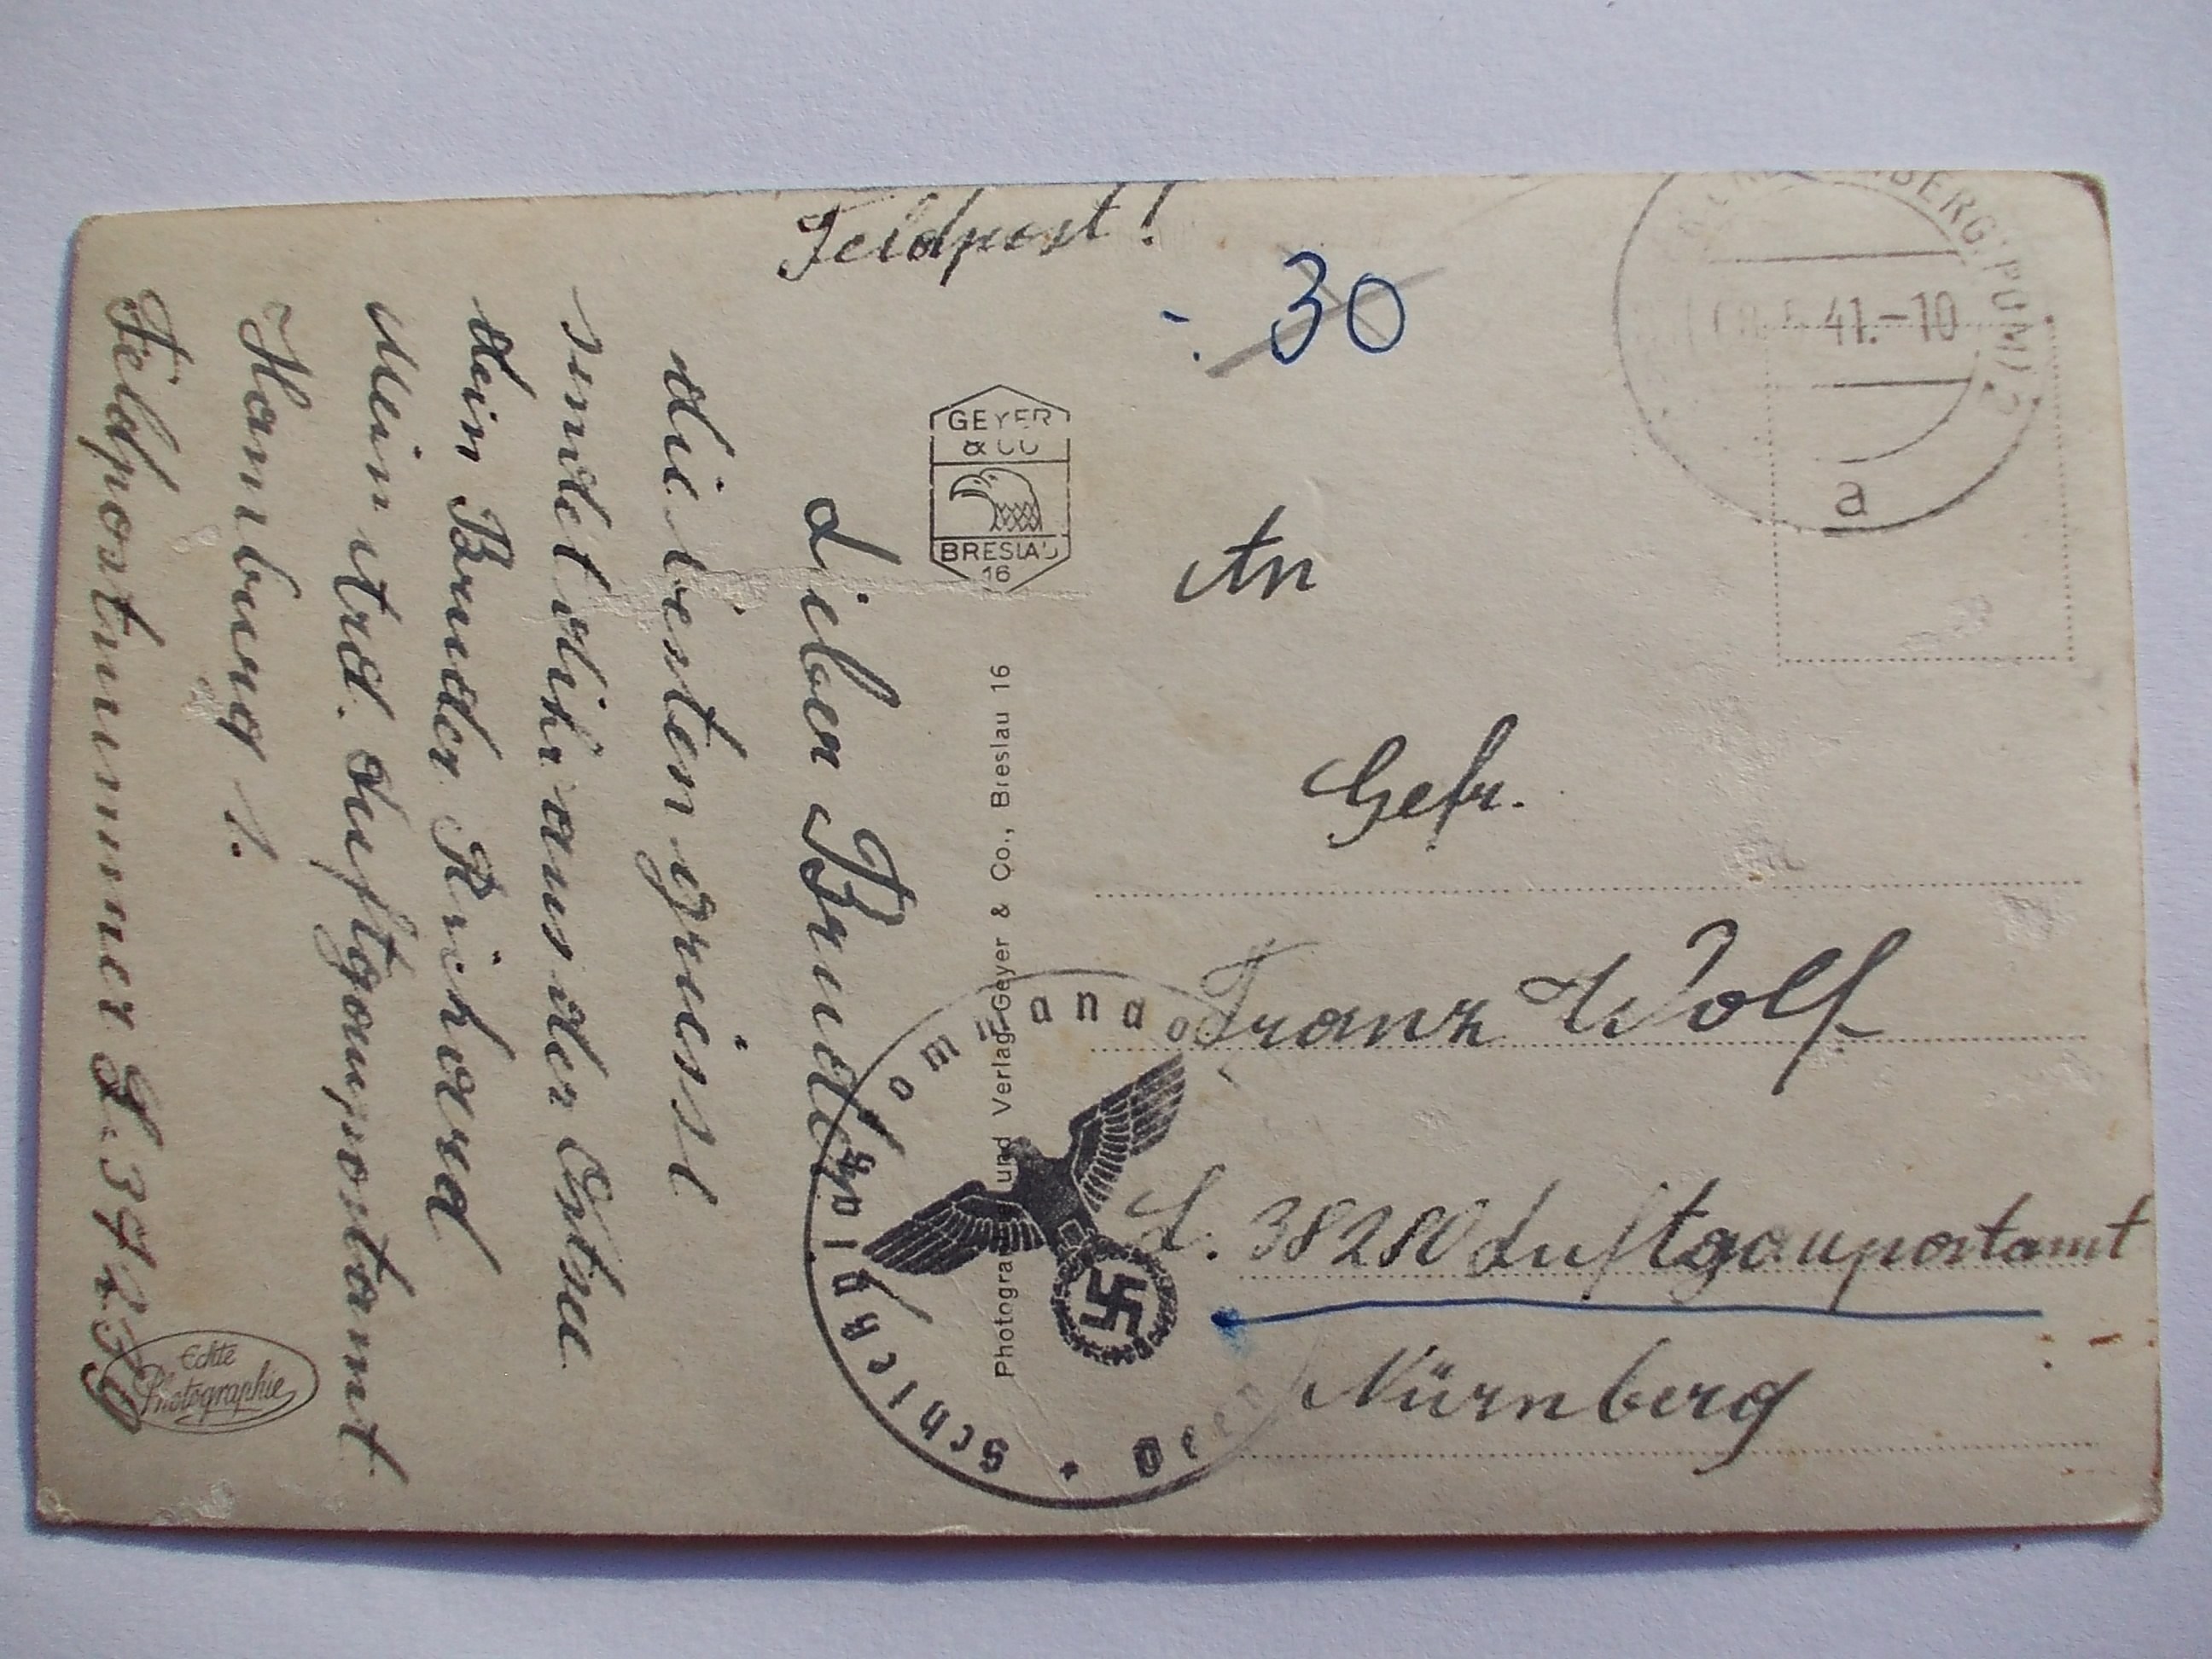 Feldpost!
30
41.-10
a
GEYER
& CO
BRESLAU
16
An
Gefr.
Franz Wolf
L. 38280 Luftgaupostamt
Nürnberg
Lieber Bruder
die besten grüsse
sendet dihr aus der Ostsee
dein Bruder Richard
Mein Ard. Luftgaupostamt
Hamburg 1.
Feldpostnummer L.
Photogra und Verlag Geyer & Co., Breslau 16
Echte
Photographie